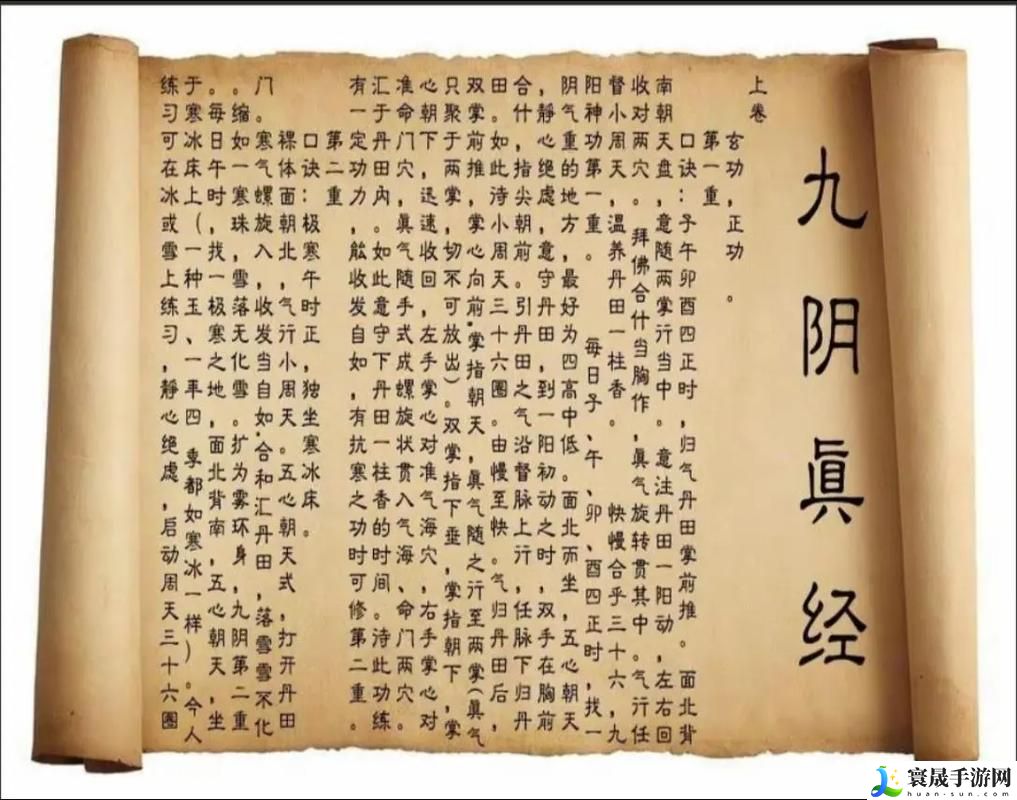 九阴眞经
上卷
玄功，正功。
第一重
口诀：子午卯酉四正时，归气丹田掌前推。面北背
南朝天盘，意随两掌行当中。意注丹田一阳动，左右回
收对两穴。拜佛合什当胸作，眞气旋转贯其中。气行任
督小周天，温养丹田一柱香。快慢合乎三十六，九
阳神功第一重。每日子、午、卯、酉四正时，找一
阴气重的地方，最好为四高中低。面北而坐，五心朝天
，静心绝虑，意守丹田，到一阳初动之时，双手在胸前
合什，指尖朝前。引丹田之气沿督脉上行，任脉下归丹
田。如此待小周天三十六圈。由慢至快。气归丹田后，
双掌前推，掌心向前.掌指朝天，眞气随之行至两掌(眞气
只聚于两掌，切不可放出)。双掌指下垂，掌指朝下，掌
心朝下，迅速收回，左手掌心对准气海穴，右手掌心对
准命门穴，眞气随手式成螺旋状贯入气海、命门两穴。
汇于丹田内。如此意守下丹田一柱香的时间。待此功练
有一定功力，能收发自如，有抗寒之功时可修第二重。
第二重
口诀：极寒午时正，独坐寒冰床。
裸体面朝北，气行小周天。五心朝天式，打开丹田
门。寒气螺旋入，收发当自如.合和汇丹田，落雪雪不化
。缩如一寒珠，雪落无化雪。扩为雾环身，九阴第二重
。每日午时，找一极寒之地，面北背南，五心朝天，坐
于寒冰床上(一种玉、一年四季都如寒冰一样)。今人
练习可在冰或雪上练习，静心绝虑，启动周天三十六圈
寰晟手游网
huan-sun.com